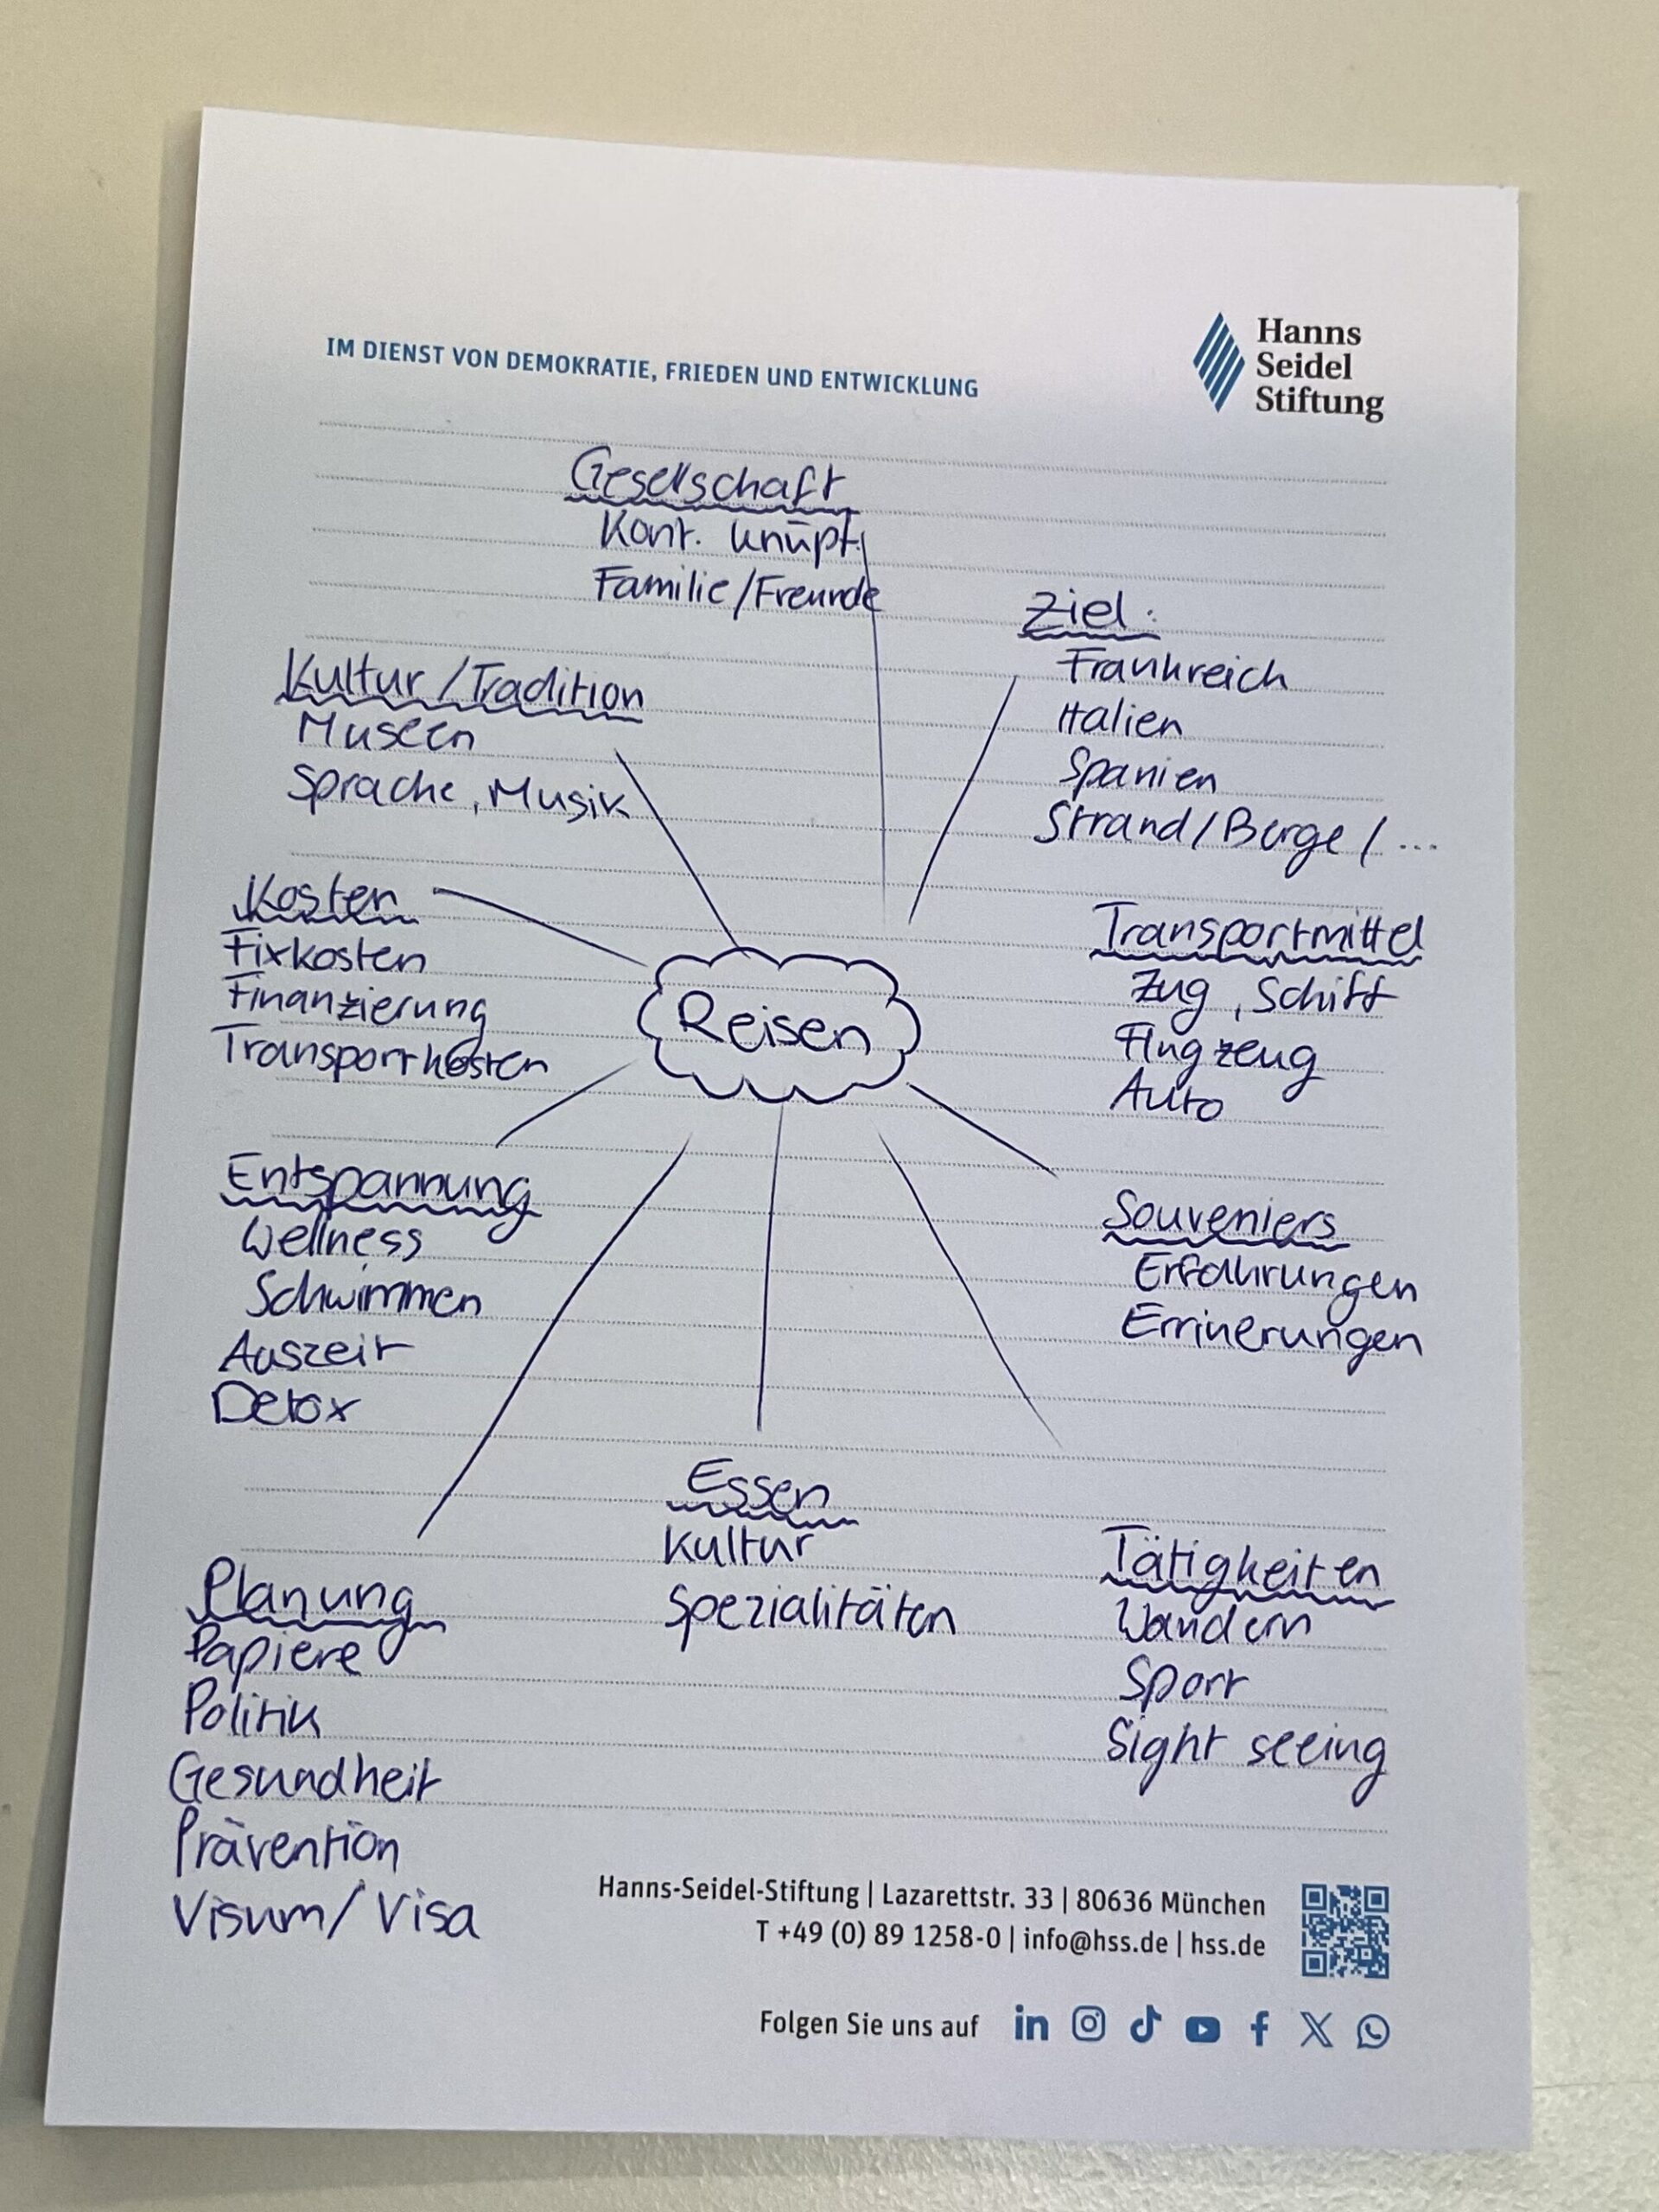 IM DIENST VON DEMOKRATIE, FRIEDEN UND ENTWICKLUNG
Hanns
Seidel
Stiftung
Gesellschaft
Kont. knüpf.
Familie/Freunde
Ziel:
Frankreich
Italien
Spanien
Strand/Berge/...
Kultur/Tradition
Museen
Sprache, Musik
Kosten
Fixkosten
Finanzierung
Transportkosten
Reisen
Transportmittel
Zug, Schiff
Flugzeug
Auto
Entspannung
Wellness
Schwimmen
Auszeit
Detox
Souveniers
Erfahrungen
Errinerungen
Essen
Kultur
Spezialitäten
Tätigkeiten
Wandern
Sport
Sight seeing
Planung
Papiere
Politik
Gesundheit
Prävention
Visum/Visa
Hanns-Seidel-Stiftung | Lazarettstr. 33 | 80636 München
T +49 (0) 89 1258-0 | info@hss.de | hss.de
Folgen Sie uns auf